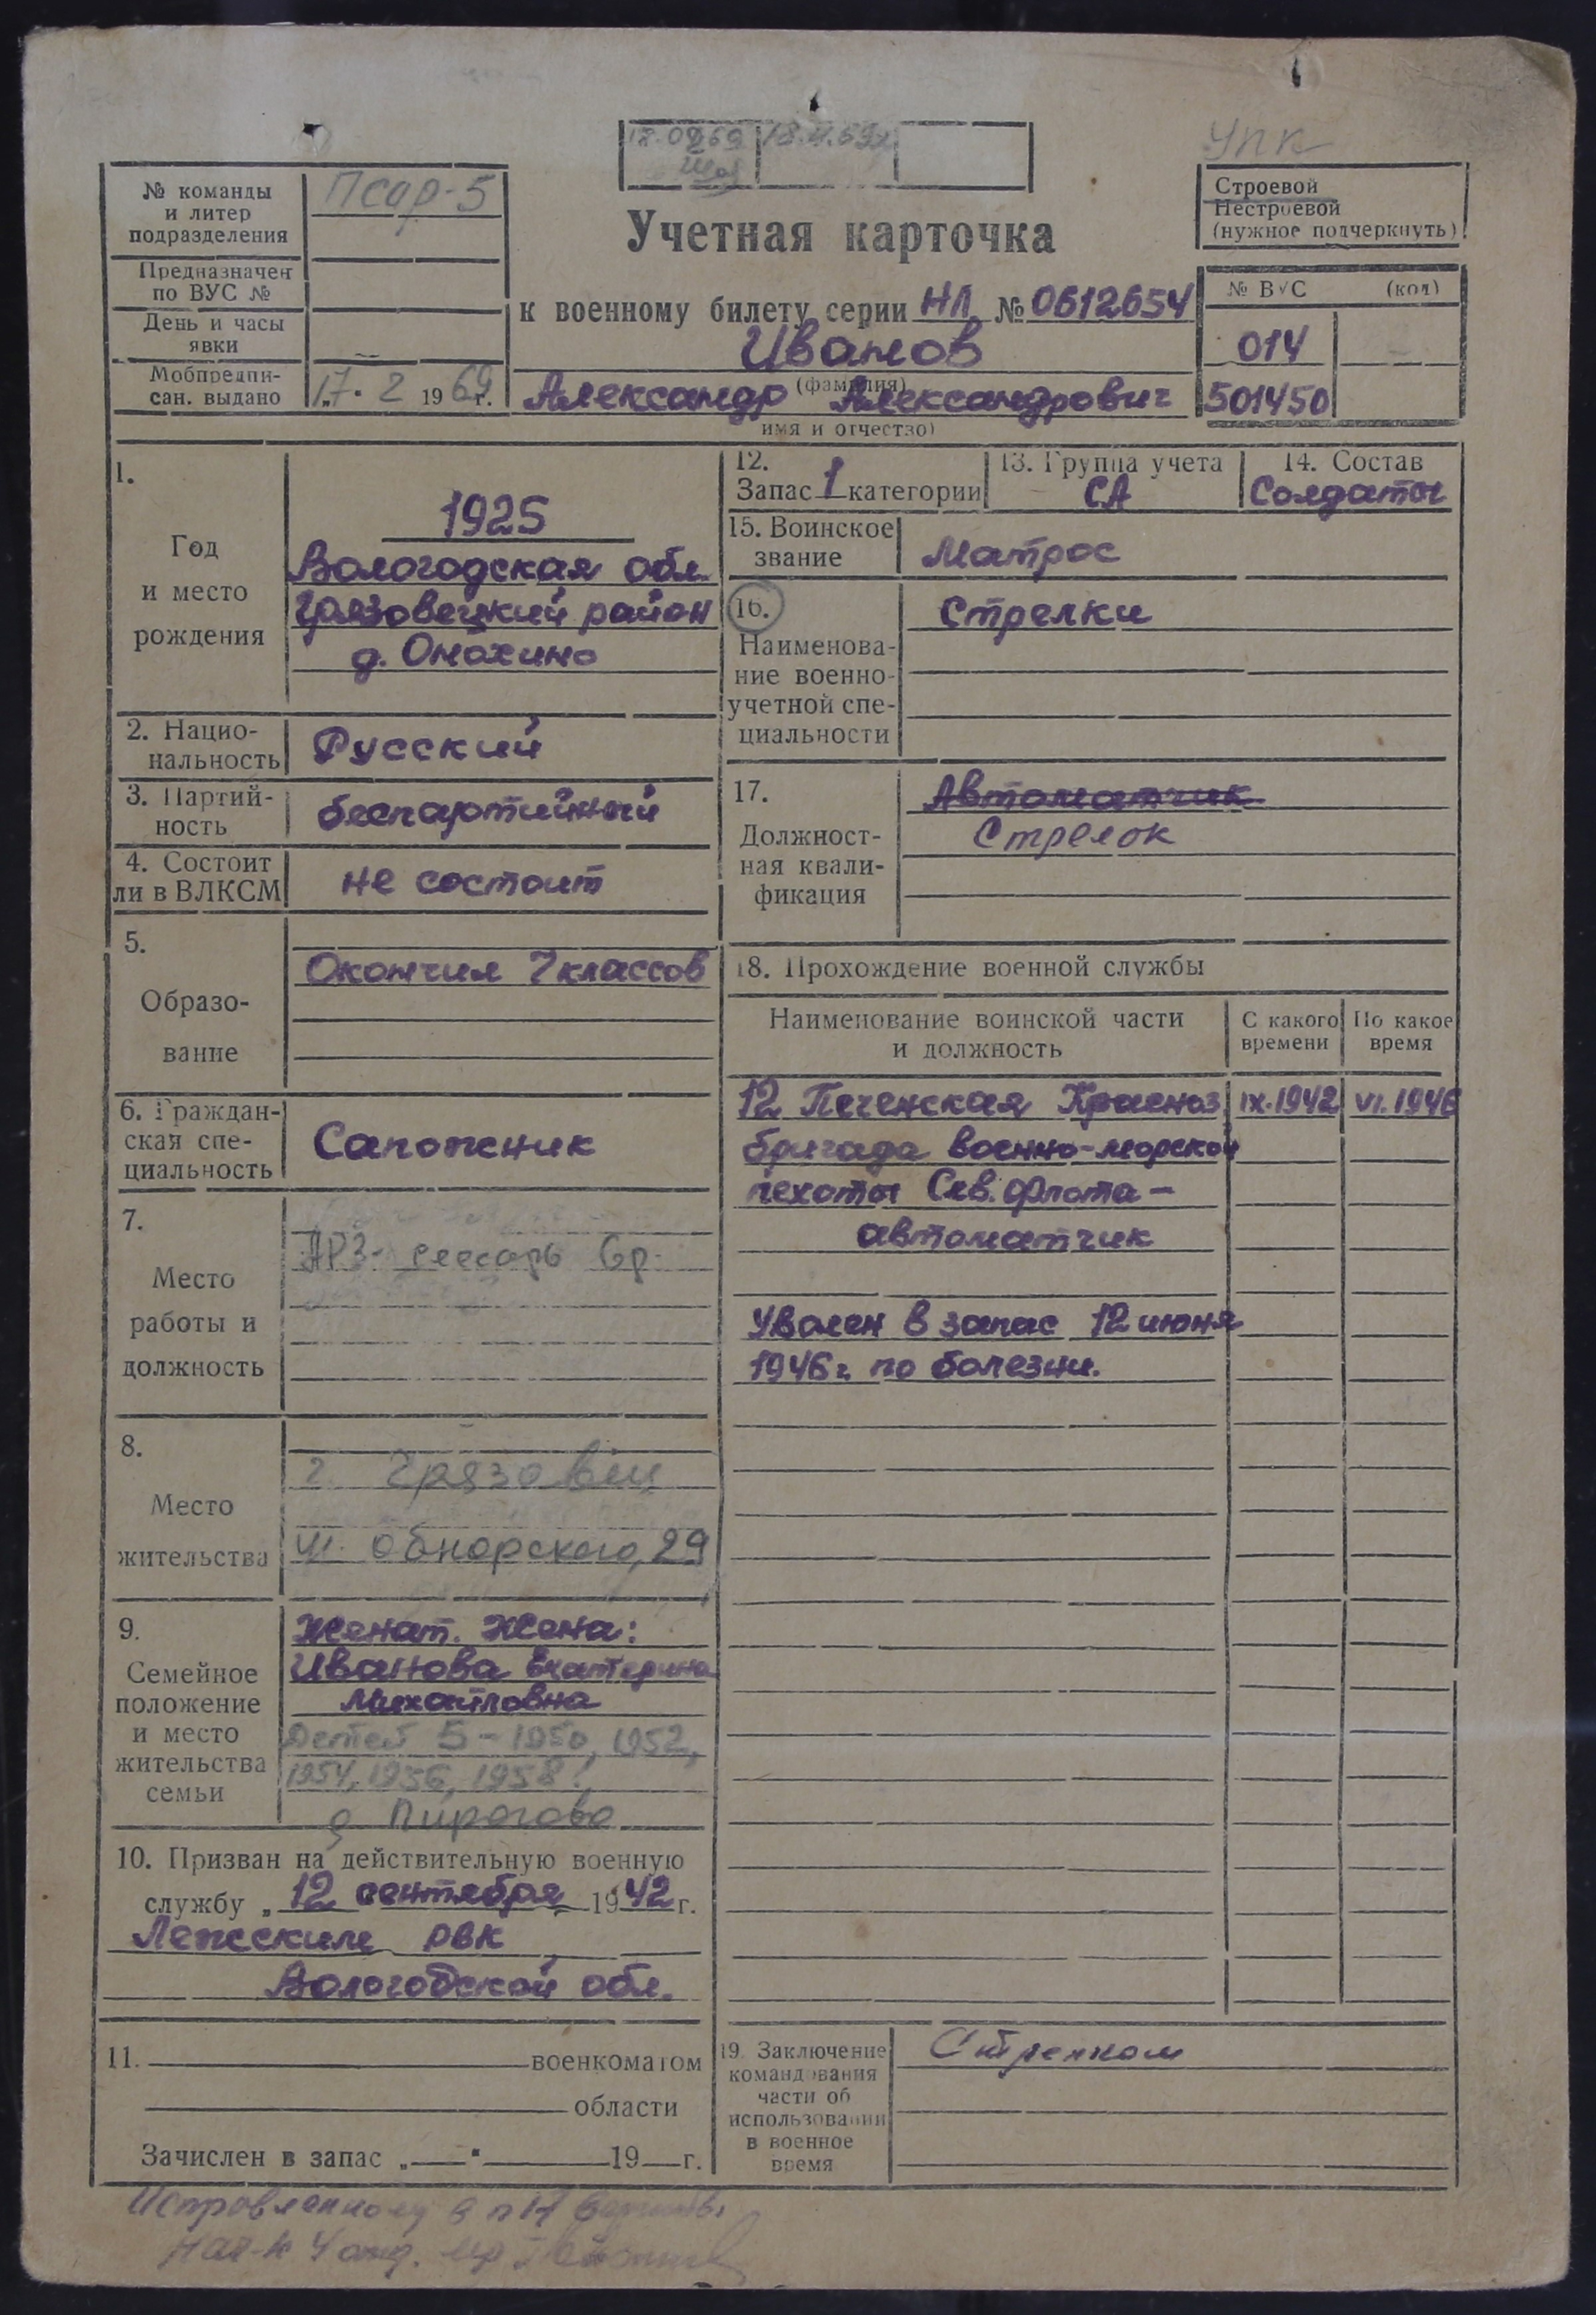 18.02.69 18.11.69г
УПК
№ команды
и литер
подразделения
Псар-5
Предназначен
по ВУС №
День и часы
явки
Мобпредпи-
сан. выдано
„17. 2 1969г.
Учетная карточка
к военному билету серии НЛ № 0612654
Иванов
(фамилия)
Александр Александрович
имя и отчество)
Строевой
Нестроевой
(нужное подчеркнуть)
№ ВУС (код)
014
501450
1.
Год
и место
рождения
1925
Вологодская обл.
Грязовецкий район
д. Онохино
2. Нацио-
нальность
Русский
3. Партий-
ность
беспартийный
4. Состоит
ли в ВЛКСМ
не состоит
5.
Образо-
вание
Окончил 7 классов
6. Граждан-
ская спе-
циальность
Сапожник
7.
Место
работы и
должность
АРЗ- слесарь 6р.
8.
Место
жительства
г. Грязовец
ул. Обнорского, 29
9.
Семейное
положение
и место
жительства
семьи
Женат. Жена:
Иванова Екатерина
Михайловна
Детей 5 - 1950, 1952,
1954, 1956, 1958г.
д Пирогово
10. Призван на действительную военную
службу „12 сентября 1942 г.
Лежским РВК
Вологодской обл.
11. военкоматом
области
Зачислен в запас „ " 19 г.
12.
Запас 1 категории
13. Группа учета
СА
14. Состав
Солдаты
15. Воинское
звание
Матрос
16.
Наименова-
ние военно-
учетной спе-
циальности
Стрелки
17.
Должност-
ная квали-
фикация
Автоматчик
Стрелок
18. Прохождение военной службы
Наименование воинской части
и должность
С какого
времени
По какое
время
12 Печенская Красноз. IX.1942 VI.1946
бригада военно-морской
пехоты Сев. Флота -
автоматчик
Уволен в запас 12 июня
1946 г. по болезни.
19. Заключение
командования
части об
использовании
в военное
время
Стрелком
Исправленному в п 17
Нач-к 4 отд. м-р